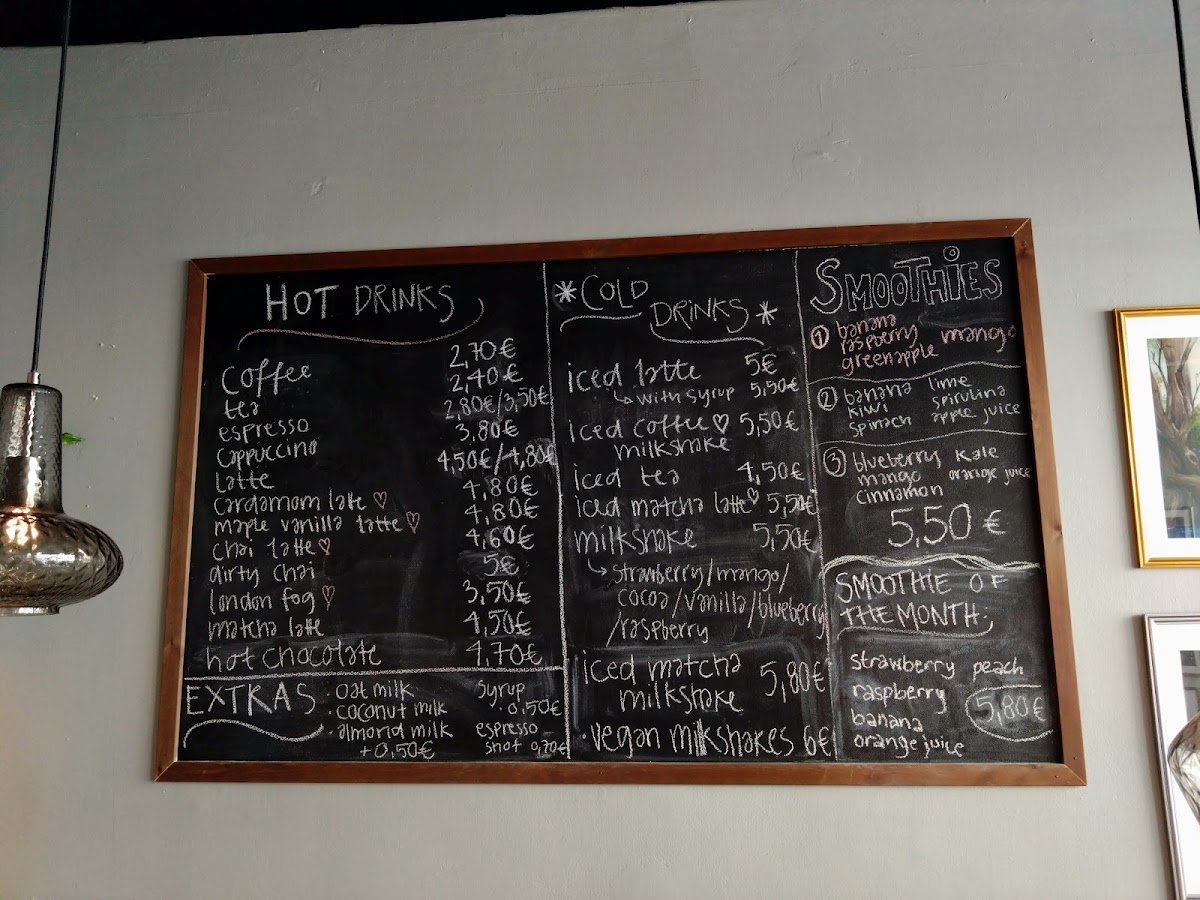 HOT DRINKS
coffee 2,70€
tea 2,40€
espresso 2,80€/3,50€
cappuccino 3,80€
latte 4,50€/4,80€
cardamom latte ♡ 4,80€
maple vanilla latte ♡ 4,80€
chai latte ♡ 4,60€
dirty chai 5€
london fog ♡ 3,50€
matcha latte 4,50€
hot chocolate 4,70€
EXTRAS · oat milk
· coconut milk
· almond milk
+0,50€
syrup
0,50€
espresso
shot 0,70€
*COLD
DRINKS*
iced latte 5€
↳ with syrup 5,50€
iced coffee ♡ 5,50€
milkshake
iced tea 4,50€
iced matcha latte ♡ 5,50€
milkshake 5,50€
↳ strawberry/mango/
cocoa/vanilla/blueberry
/raspberry
iced matcha 5,80€
milkshake
· vegan milkshakes 6€
SMOOTHIES
① banana
raspberry mango
green apple
② banana lime
kiwi spirulina
spinach apple juice
③ blueberry kale
mango orange juice
cinnamon
5,50€
SMOOTHIE OF
THE MONTH:
strawberry peach
raspberry 5,80€
banana
orange juice